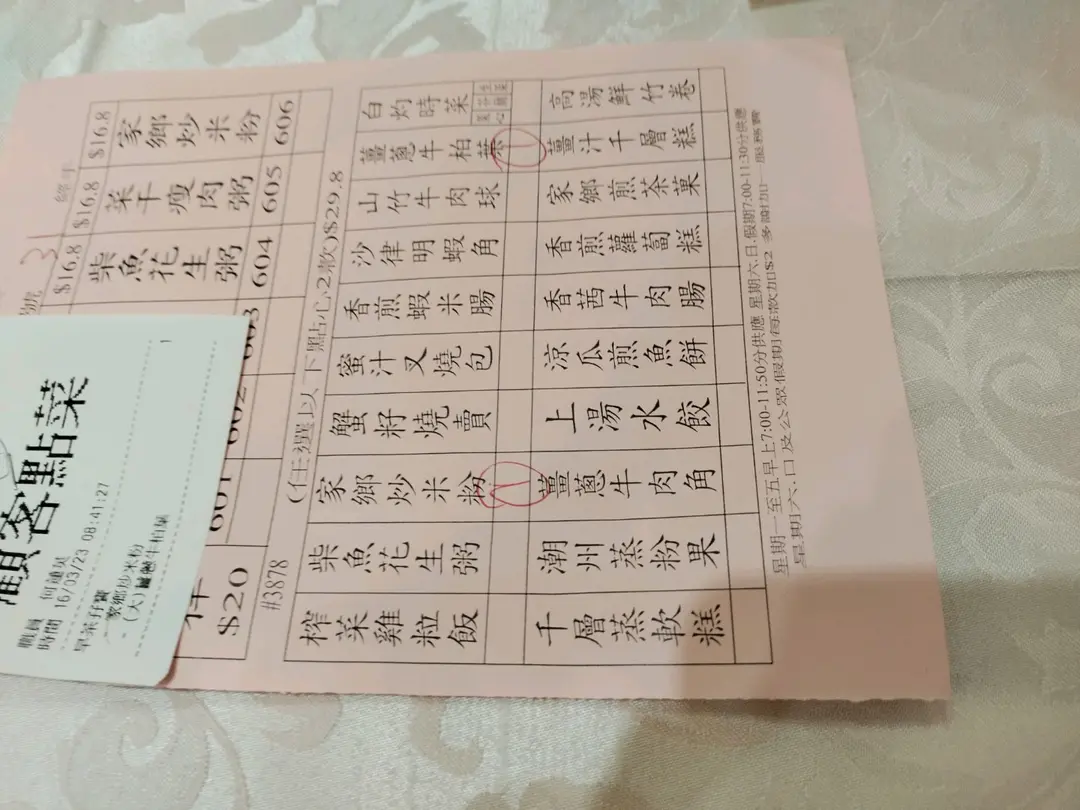 顧客點菜
職員
時間 16/03/23 08:41:27
家鄉炒米粉
(大)薑蔥牛柏葉
1
3
$16.8
家鄉炒米粉
606
$16.8
菜干瘦肉粥
605
$16.8
柴魚花生粥
604
603
602
601
$20
#3878
(任選以下點心2款)$29.8
白灼時菜
生菜
芥蘭
菜心
薑蔥牛柏葉
山竹牛肉球
沙律明蝦角
香煎蝦米腸
蜜汁叉燒包
蟹籽燒賣
家鄉炒米粉
柴魚花生粥
榨菜雞粒飯
1
1
高湯鮮竹卷
薑汁千層糕
家鄉煎茶菓
香煎蘿蔔糕
香茜牛肉腸
涼瓜煎魚餅
上湯水餃
薑蔥牛肉角
潮州蒸粉果
千層蒸軟糕
星期一至五早上7:00-11:50分供應 星期六.日.假期7:00-11:30分供應
星期六.日及公眾假期每款加$2 多謝加一服務費